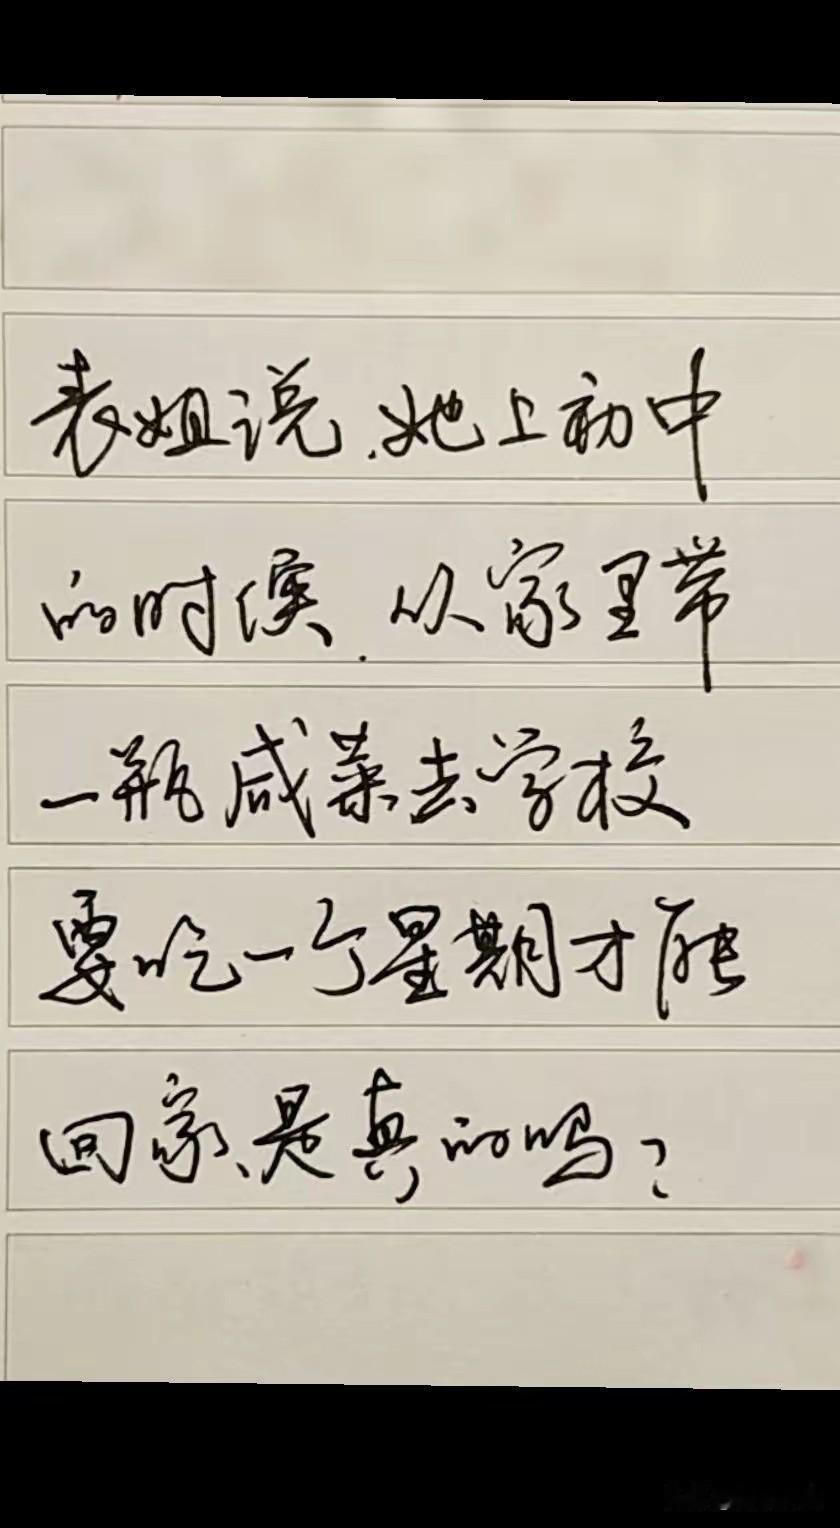 表姐说，她上初中
的时候，从家里带
一瓶咸菜去学校
要吃一个星期才能
回家、是真的吗？